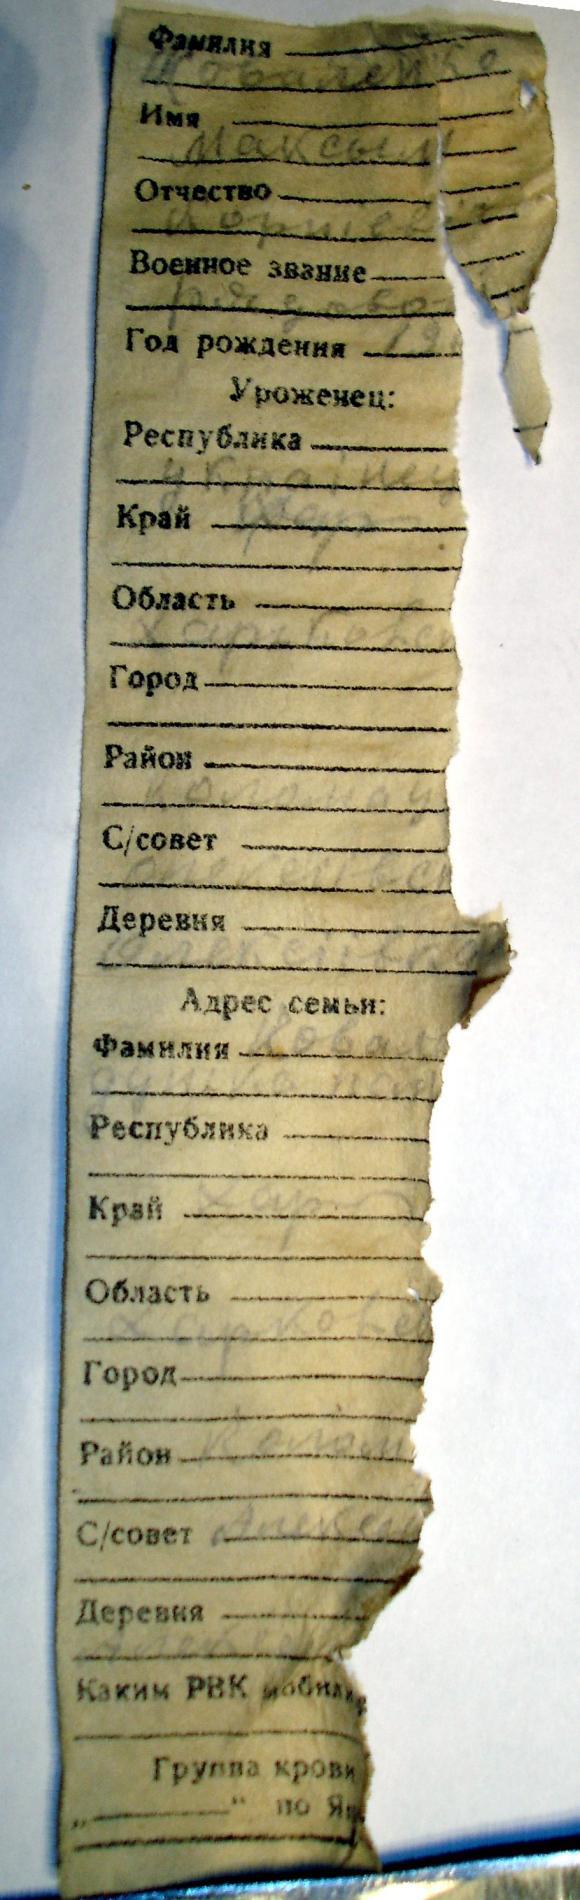 Фамилия
Коваленко
Имя
Максым
Отчество
Военное звание
рядово
Год рождения 19
Уроженец:
Республика
украінец
Край Хар
Область
Харковск
Город
Район
коломац
С/совет
Деревня
Адрес семьи:
Фамилия Ковал
Республика
Край Хар
Область
Харковск
Город
Район Колом
С/совет Алексе
Деревня
Алексе
Каким РВК мобилиз
Группа крови
„ “ по Ян